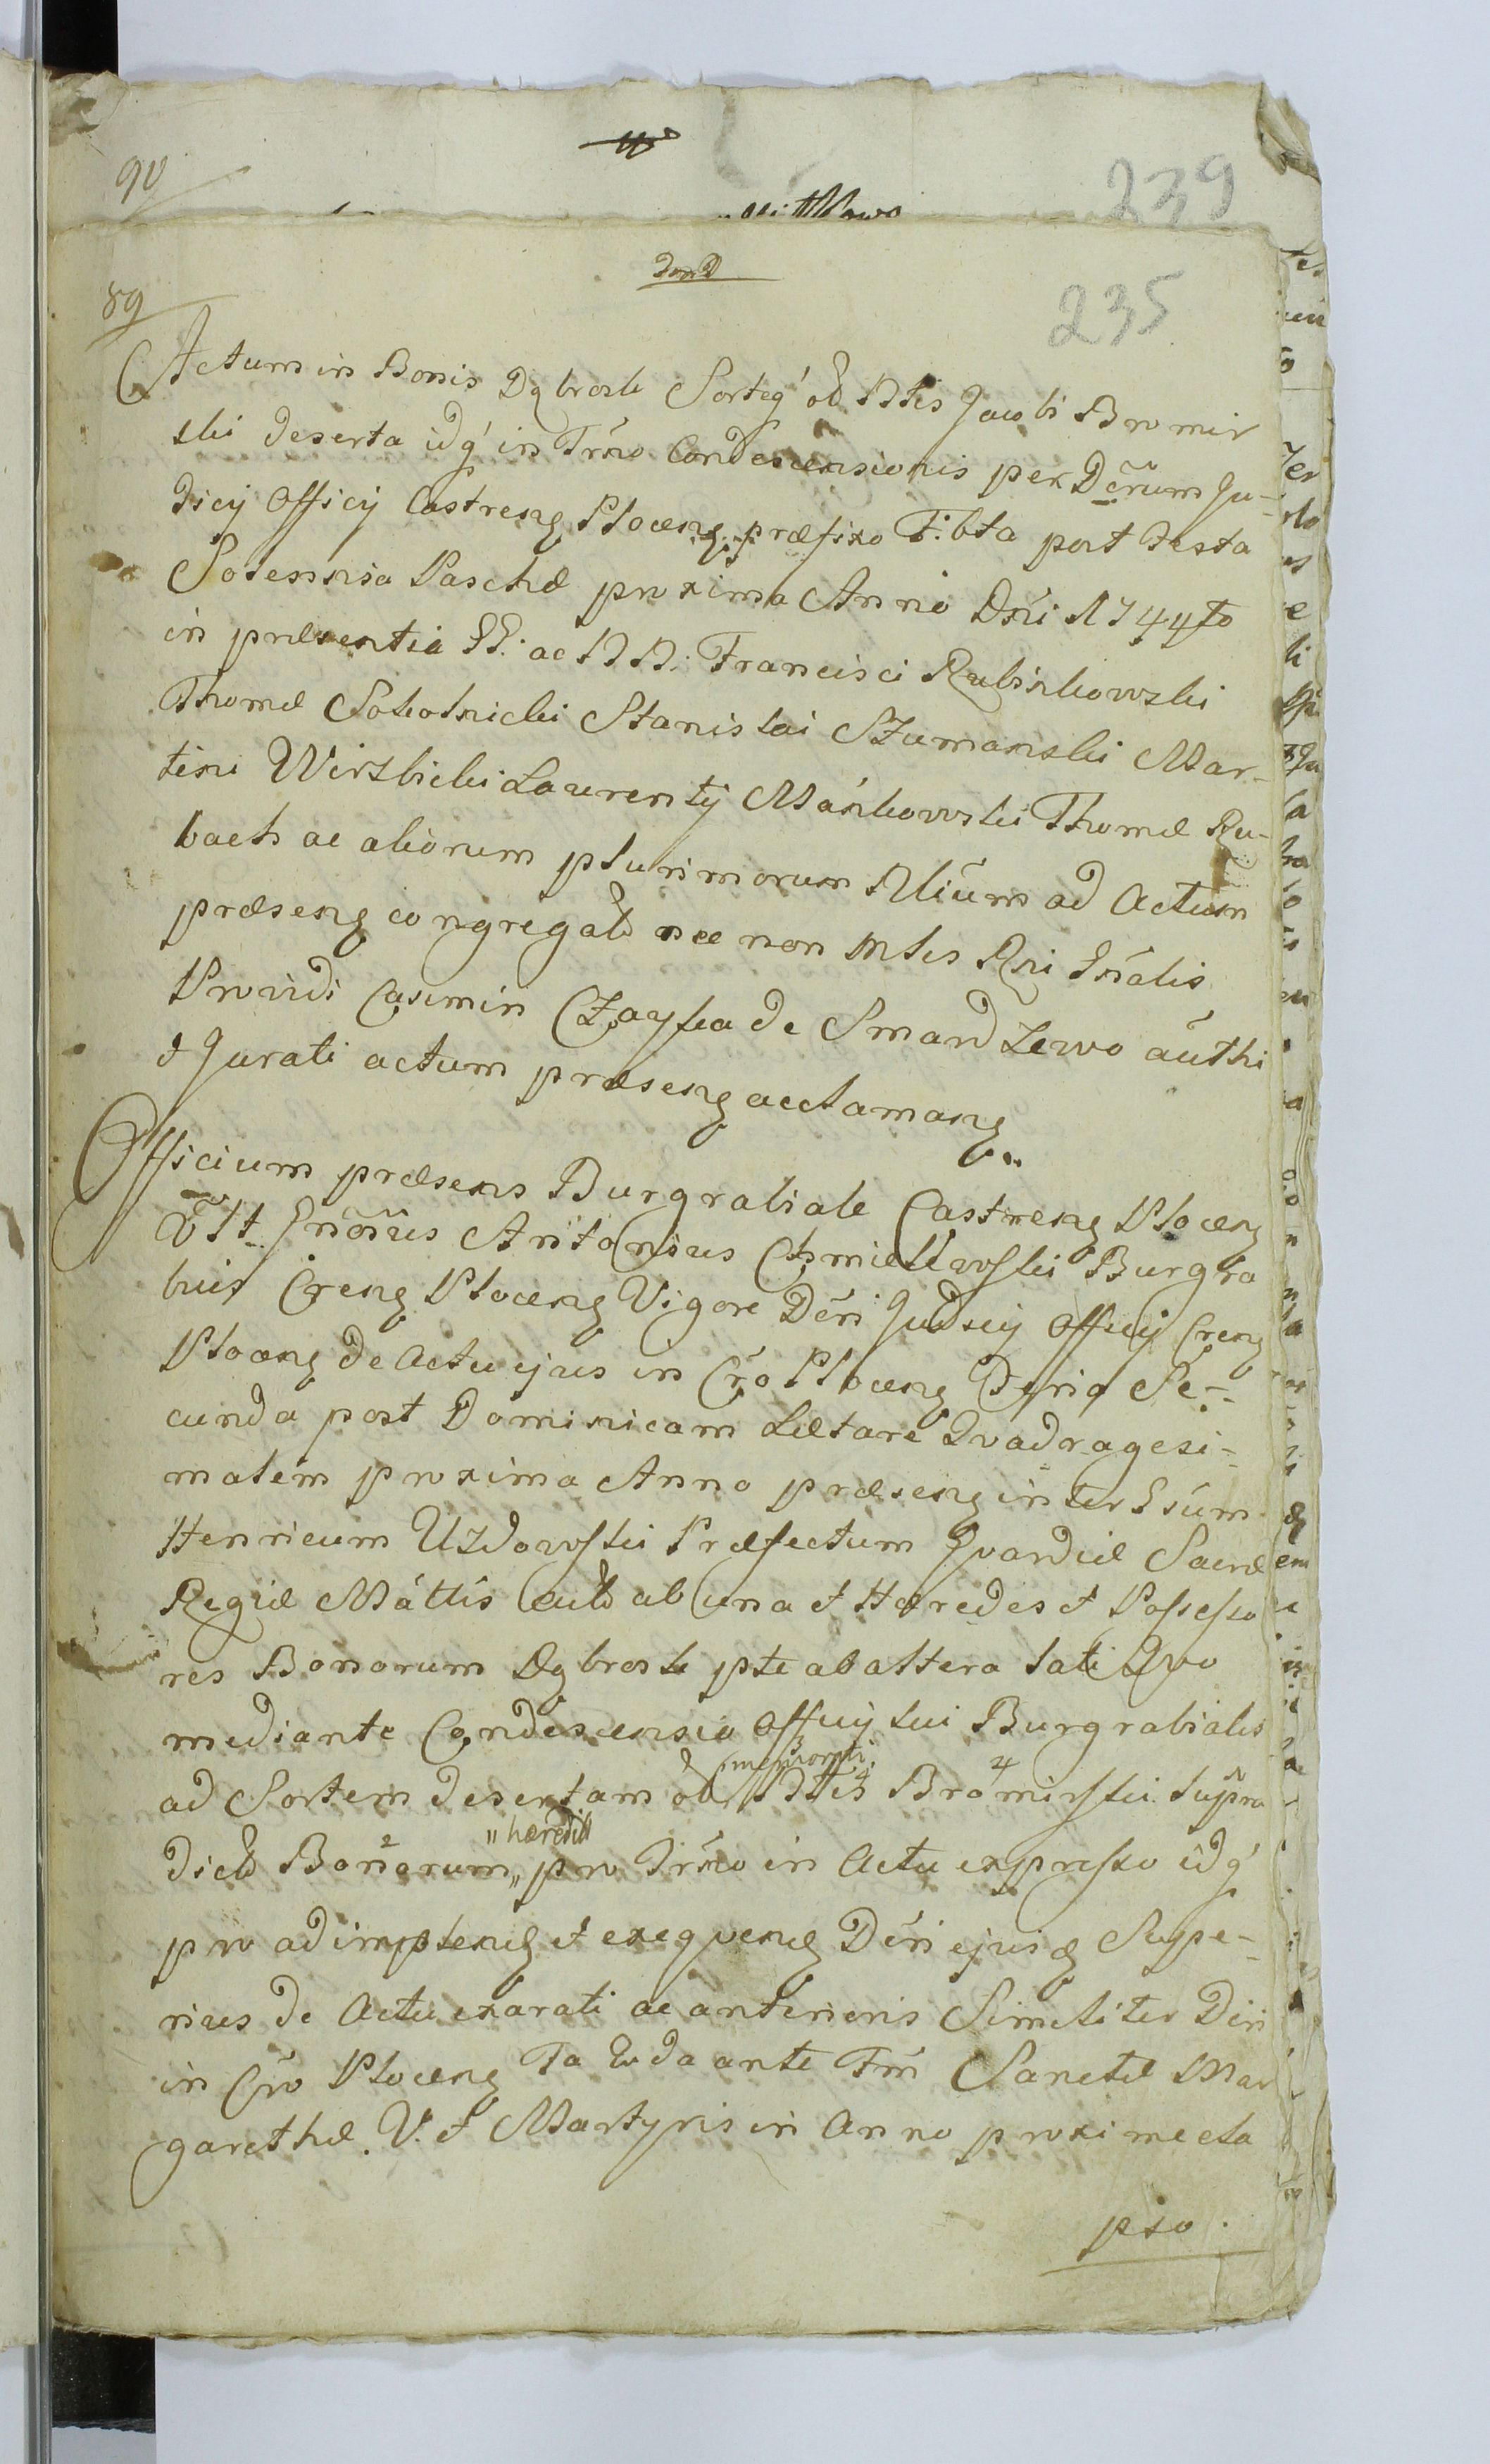 90
239
89
235
Actum in Bonis Dąbrosk Sorteq' olĩ Nlis Jacobi Bromir
ski deserta idq' in Trno Condescensionis per Dcrũm Ju-
dicij Officij Castrens Plocens præfixo F: bta post Festa
Solennia Paschæ proxima Anno Dni 1744to
in præsentia GG: ac NN: Francisci Rubinkowski
Thomæ Sokolnicki Stanislai Szumanski Mar-
tini Wirzbicki Laurentij Mańkowski Thomæ Ku-
bach ac aliorum plurimorum Nliũm ad Actum
præsens congregat nec non Mlis Rni Gnalis
Providi Casimiri Czayka de Smardzewo aũthi
& Jurati actum præsens acclamans
Officium præsens Burgrabiale Castrens Plocens
Utt Gnõsus Antonius Chmielewski Burgra
bius Crens Plocens Vigore Dẽri Judicij Officij Crens
Plocens de Actu ejus in Cro Plocens Feria Se-
cunda post Dominicam Lætare Qvadragesi-
malem proxima Anno præsens inter Gsũm
Henricum Uzdowski Præfectum Gvardiæ Sacræ
Regiæ Mattis ab una et Hæredes et Possesso
res Bonorum Dąbrosk pte ab altera lati Qvo
mediante Condescensio Officij sui Burgrabialis
memorati
ad Sortem desertam olĩ Nlis Bromirski supra
hæredit
dict Bonorum, pro Trno in Actu expresso idq'
pro adimplend et exeqvend Dẽri ejusd Supe-
rius de Actu exarati ac anterioris Similiter Dẽri
in Cro Plocens Fa 2da ante Fm Sanctæ Mar
garethæ V. et Martyris in Anno proxime ela
pso.